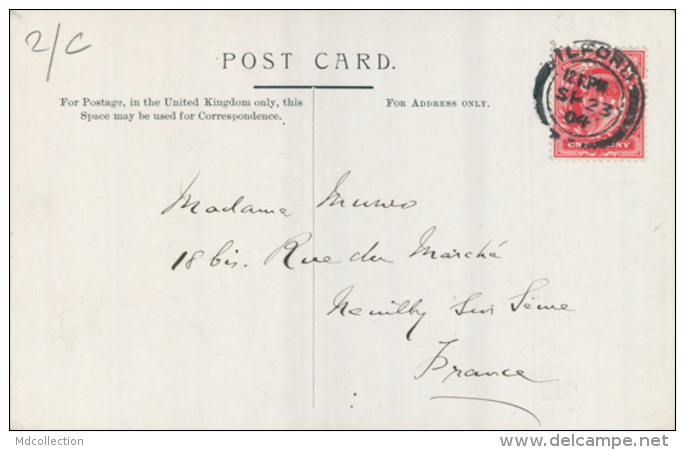 2/C
POST CARD.
For Postage, in the United Kingdom only, this
Space may be used for Correspondence.
FOR ADDRESS ONLY.
ILFORD
SP 23
04
ONE PENNY
Madame Munro
18 bis. Rue du Marché
Neuilly Sur Seine
France
Mdcollection
www.delcampe.net